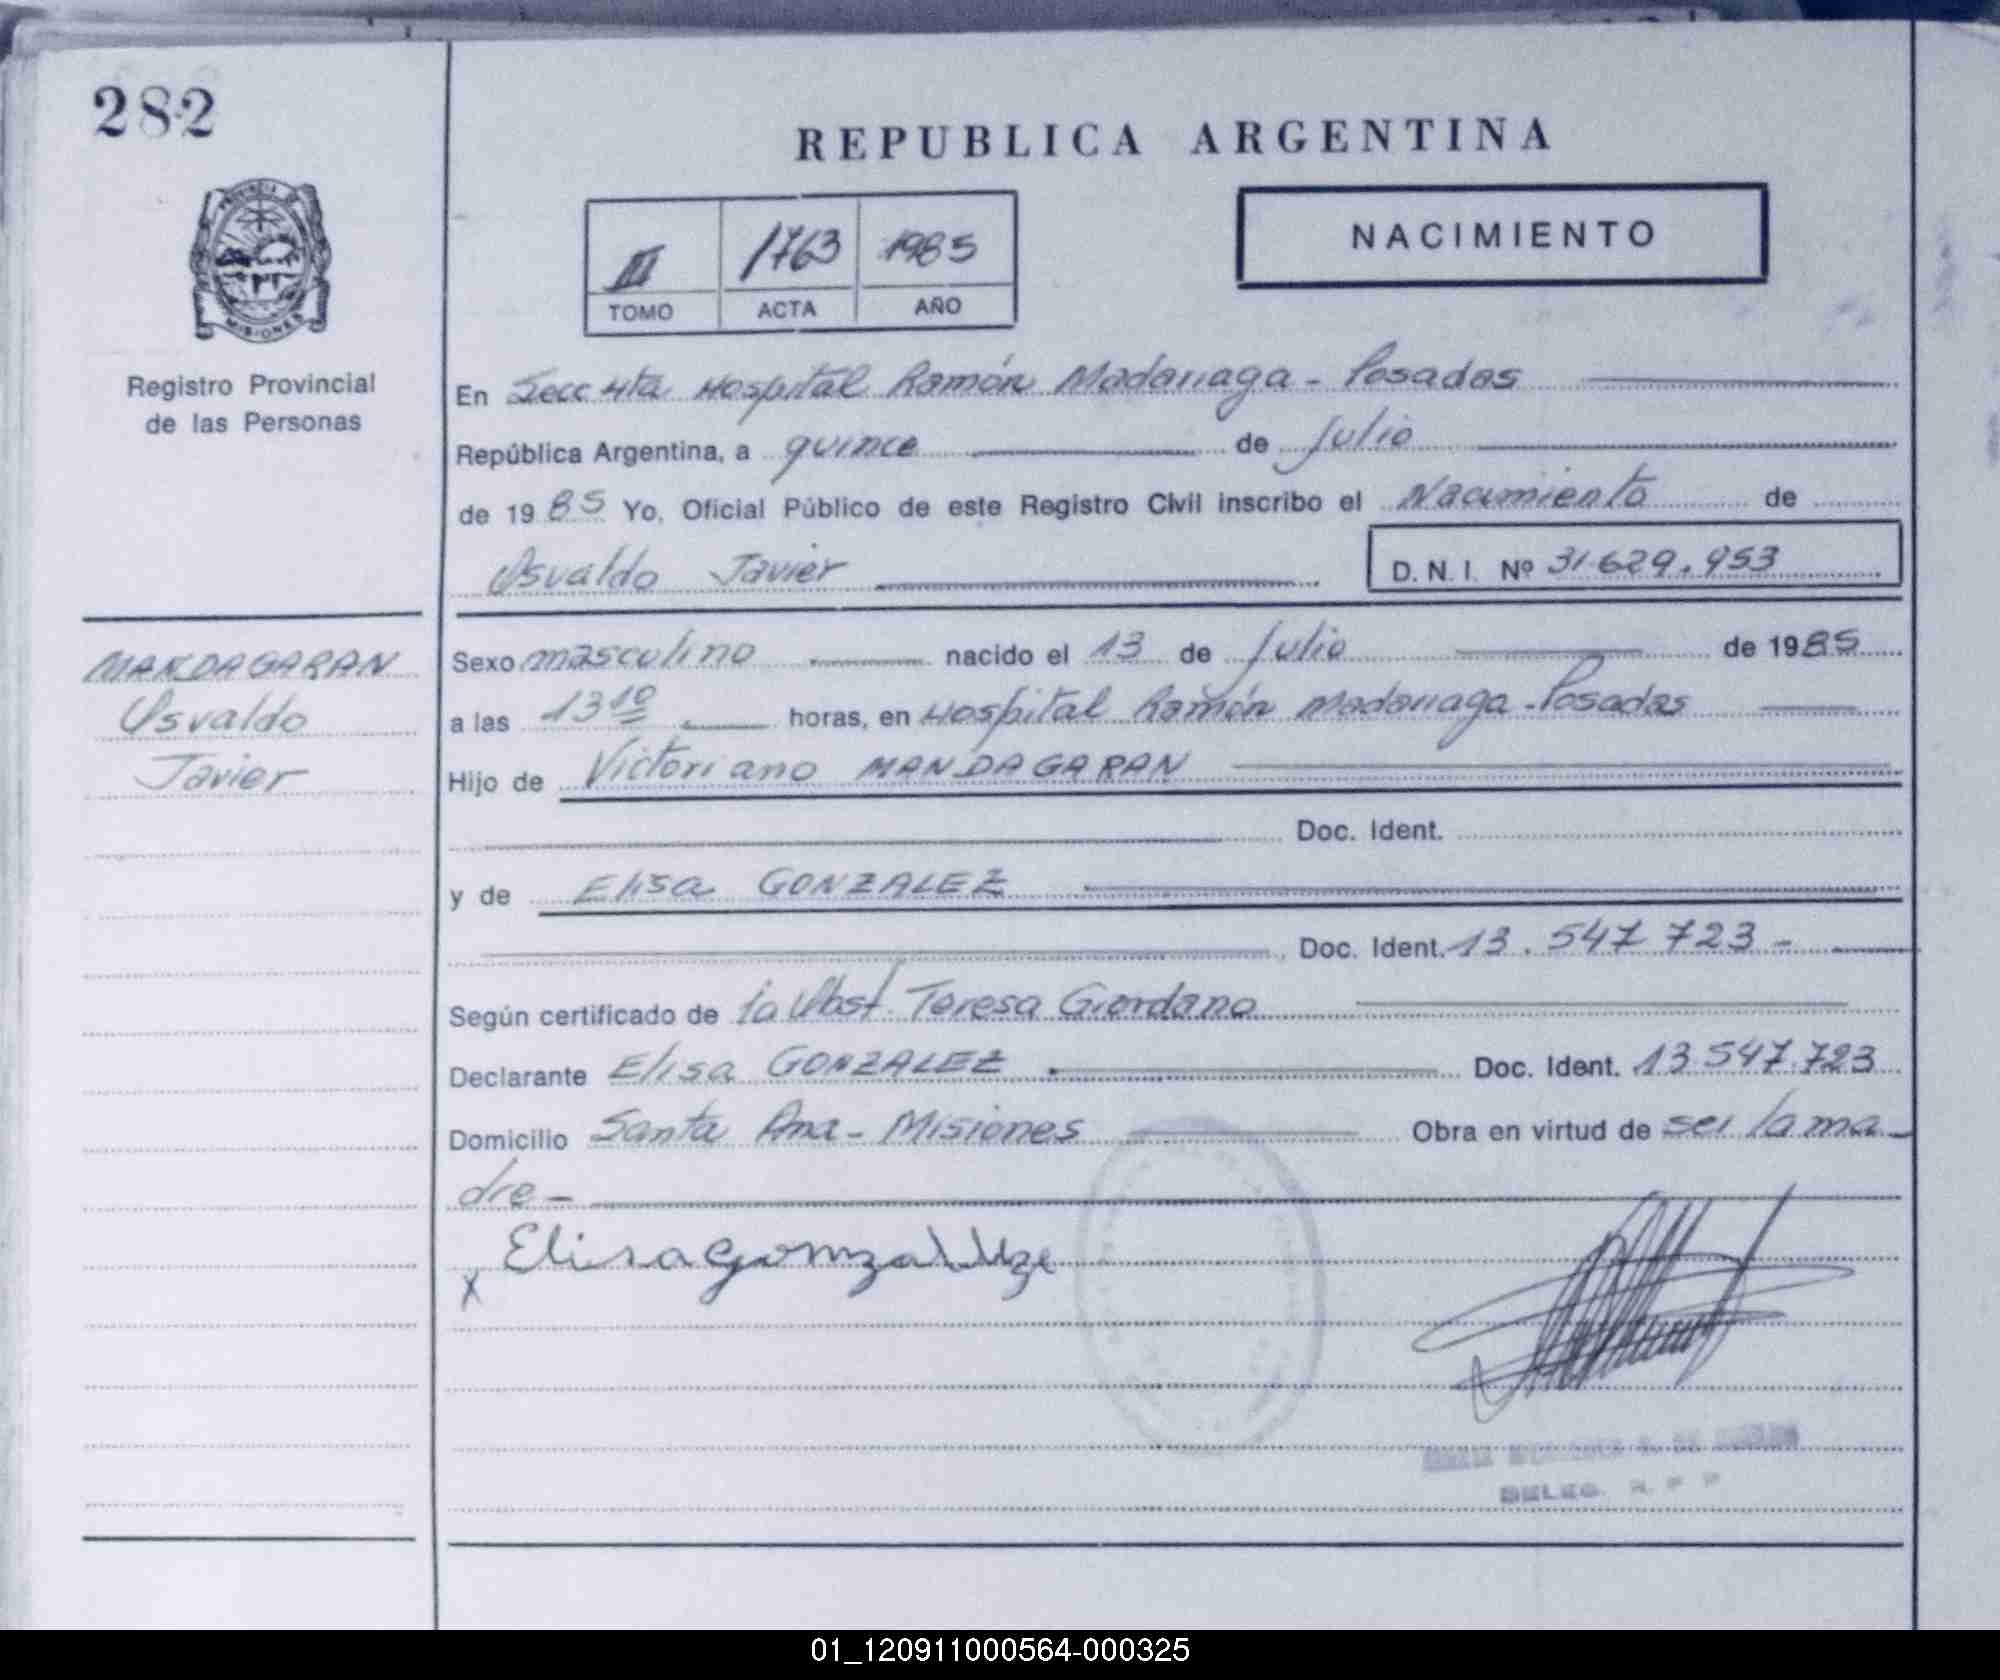 282
REPUBLICA ARGENTINA
PROVINCIA DE
MISIONES
Registro Provincial
de las Personas
III 1763 1985
TOMO ACTA AÑO
NACIMIENTO
En Secc 4ta Hospital Ramón Madariaga - Posadas
República Argentina, a quince de Julio
de 1985 Yo, Oficial Público de este Registro Civil inscribo el Nacimiento de
Osvaldo Javier D.N.I. Nº 31.629.953
MANDAGARAN
Osvaldo
Javier
Sexo masculino nacido el 13 de Julio de 1985
a las 13 10 horas, en Hospital Ramón Madariaga - Posadas
Hijo de Victoriano MANDAGARAN
Doc. Ident.
y de Elisa GONZALEZ
Doc. Ident. 13.547.723 -
Según certificado de la Obst. Teresa Giordano
Declarante Elisa GONZALEZ Doc. Ident. 13.547.723
Domicilio Santa Ana - Misiones Obra en virtud de ser la ma-
dre -
x Elisa
DELEG. R. P. P.
01_120911000564-000325